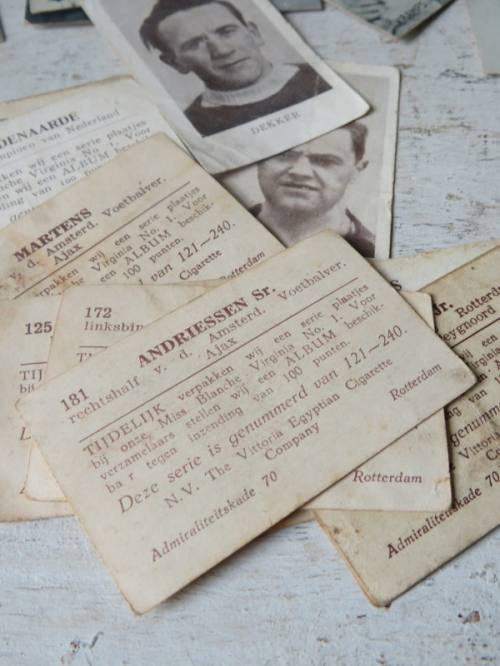 DEKKER
DENAARDE
mpioen van Nederland
kken wij een serie plaatjes
che Virginia No. 1. Voor
n wij een ALBUM
ng van 100
MARTENS
v. d. Amsterd. Voetbalver.
Ajax
rpakken wij een serie plaatjes
Blanche Virginia No. 1. Voor
llen wij een ALBUM beschik-
van 100 punten.
d van 121—240.
Cigarette
Rotterdam
125
TIJ
172
linksbin
TIJ
181
ANDRIESSEN Sr.
rechtshalf v. d. Amsterd. Voetbalver.
Ajax
TIJDELIJK verpakken wij een serie plaatjes
bij onze Miss Blanche Virginia No. 1. Voor
verzamelaars stellen wij een ALBUM beschik-
ba r tegen inzending van 100 punten.
Deze serie is genummerd van 121—240.
N.V. The Vittoria Egyptian Cigarette
Company
Admiraliteitskade 70
Rotterdam
Rotterdam
Jr.
Rotterd
eyenoord.
een serie
No.
ALBUM
100
genumm
Admiraliteitskade 70